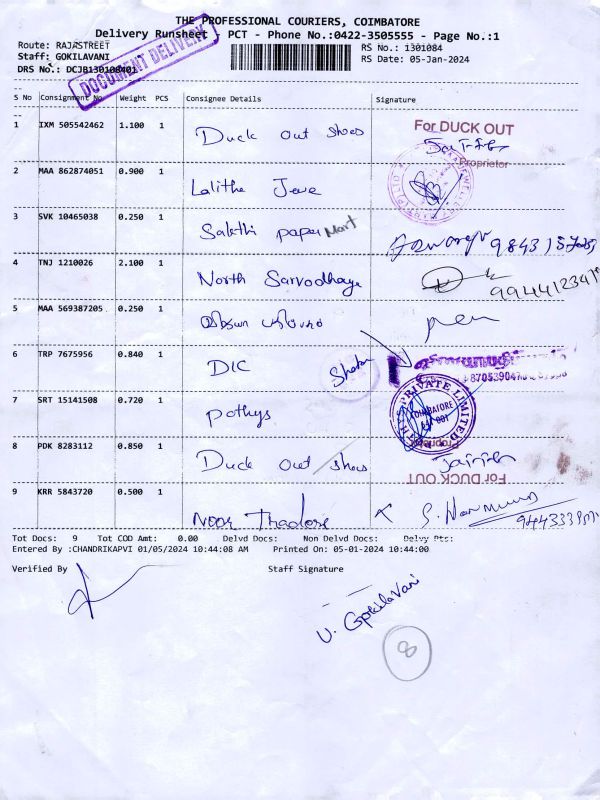 THE PROFESSIONAL COURIERS, COIMBATORE
Delivery Runsheet / PCT - Phone No.:0422-3505555 - Page No.:1
Route: RAJASTREET
RS No.: 1301084
Staff: GOKILAVANI
RS Date: 05-Jan-2024
DRS No.: DCJB130108401
DOCUMENT DELIVERY
S No Consignment No. Weight PCS Consignee Details Signature
1 IXM 505542462 1.100 1 Duck out shoes
For DUCK OUT
Proprietor
2 MAA 862874051 0.900 1 Lalitha
3 SVK 10465038 0.250 1 Sakthi paper Mart
4 TNJ 1210026 2.100 1 North Sarvodhaya
5 MAA 569387205 0.250 1
6 TRP 7675956 0.840 1 DIC
7 SRT 15141508 0.720 1 Pothys
PRIVATE LIMITED
COIMBATORE
8 PDK 8283112 0.850 1 Duck out shoes
For DUCK OUT
9 KRR 5843720 0.500 1 Noor
Tot Docs: 9 Tot COD Amt: 0.00 Delvd Docs: Non Delvd Docs: Delvy Pts:
Entered By :CHANDRIKAPVI 01/05/2024 10:44:08 AM Printed On: 05-01-2024 10:44:00
Verified By Staff Signature
U. Gokilavani
8